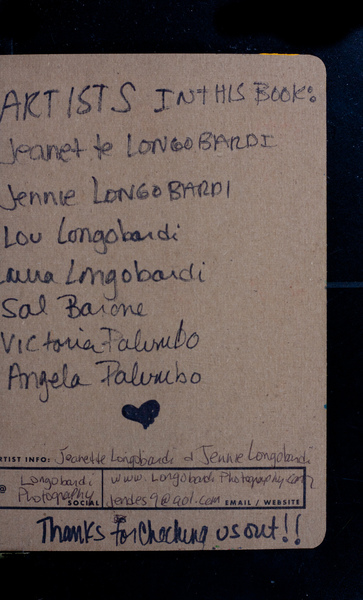 ARTISTS IN tHIS BOOK:
Jeanette LONGOBARDI
Jennie LONGOBARDI
Lou Longobardi
Laura Longobardi
Sal Barone
Victoria Palumbo
Angela Palumbo
ARTIST INFO: Jeanette Longobardi & Jennie Longobardi
@ Longobardi Photography SOCIAL
www.LongobardiPhotography.com
jendes9@aol.com EMAIL / WEBSITE
Thanks for Checking us out!!